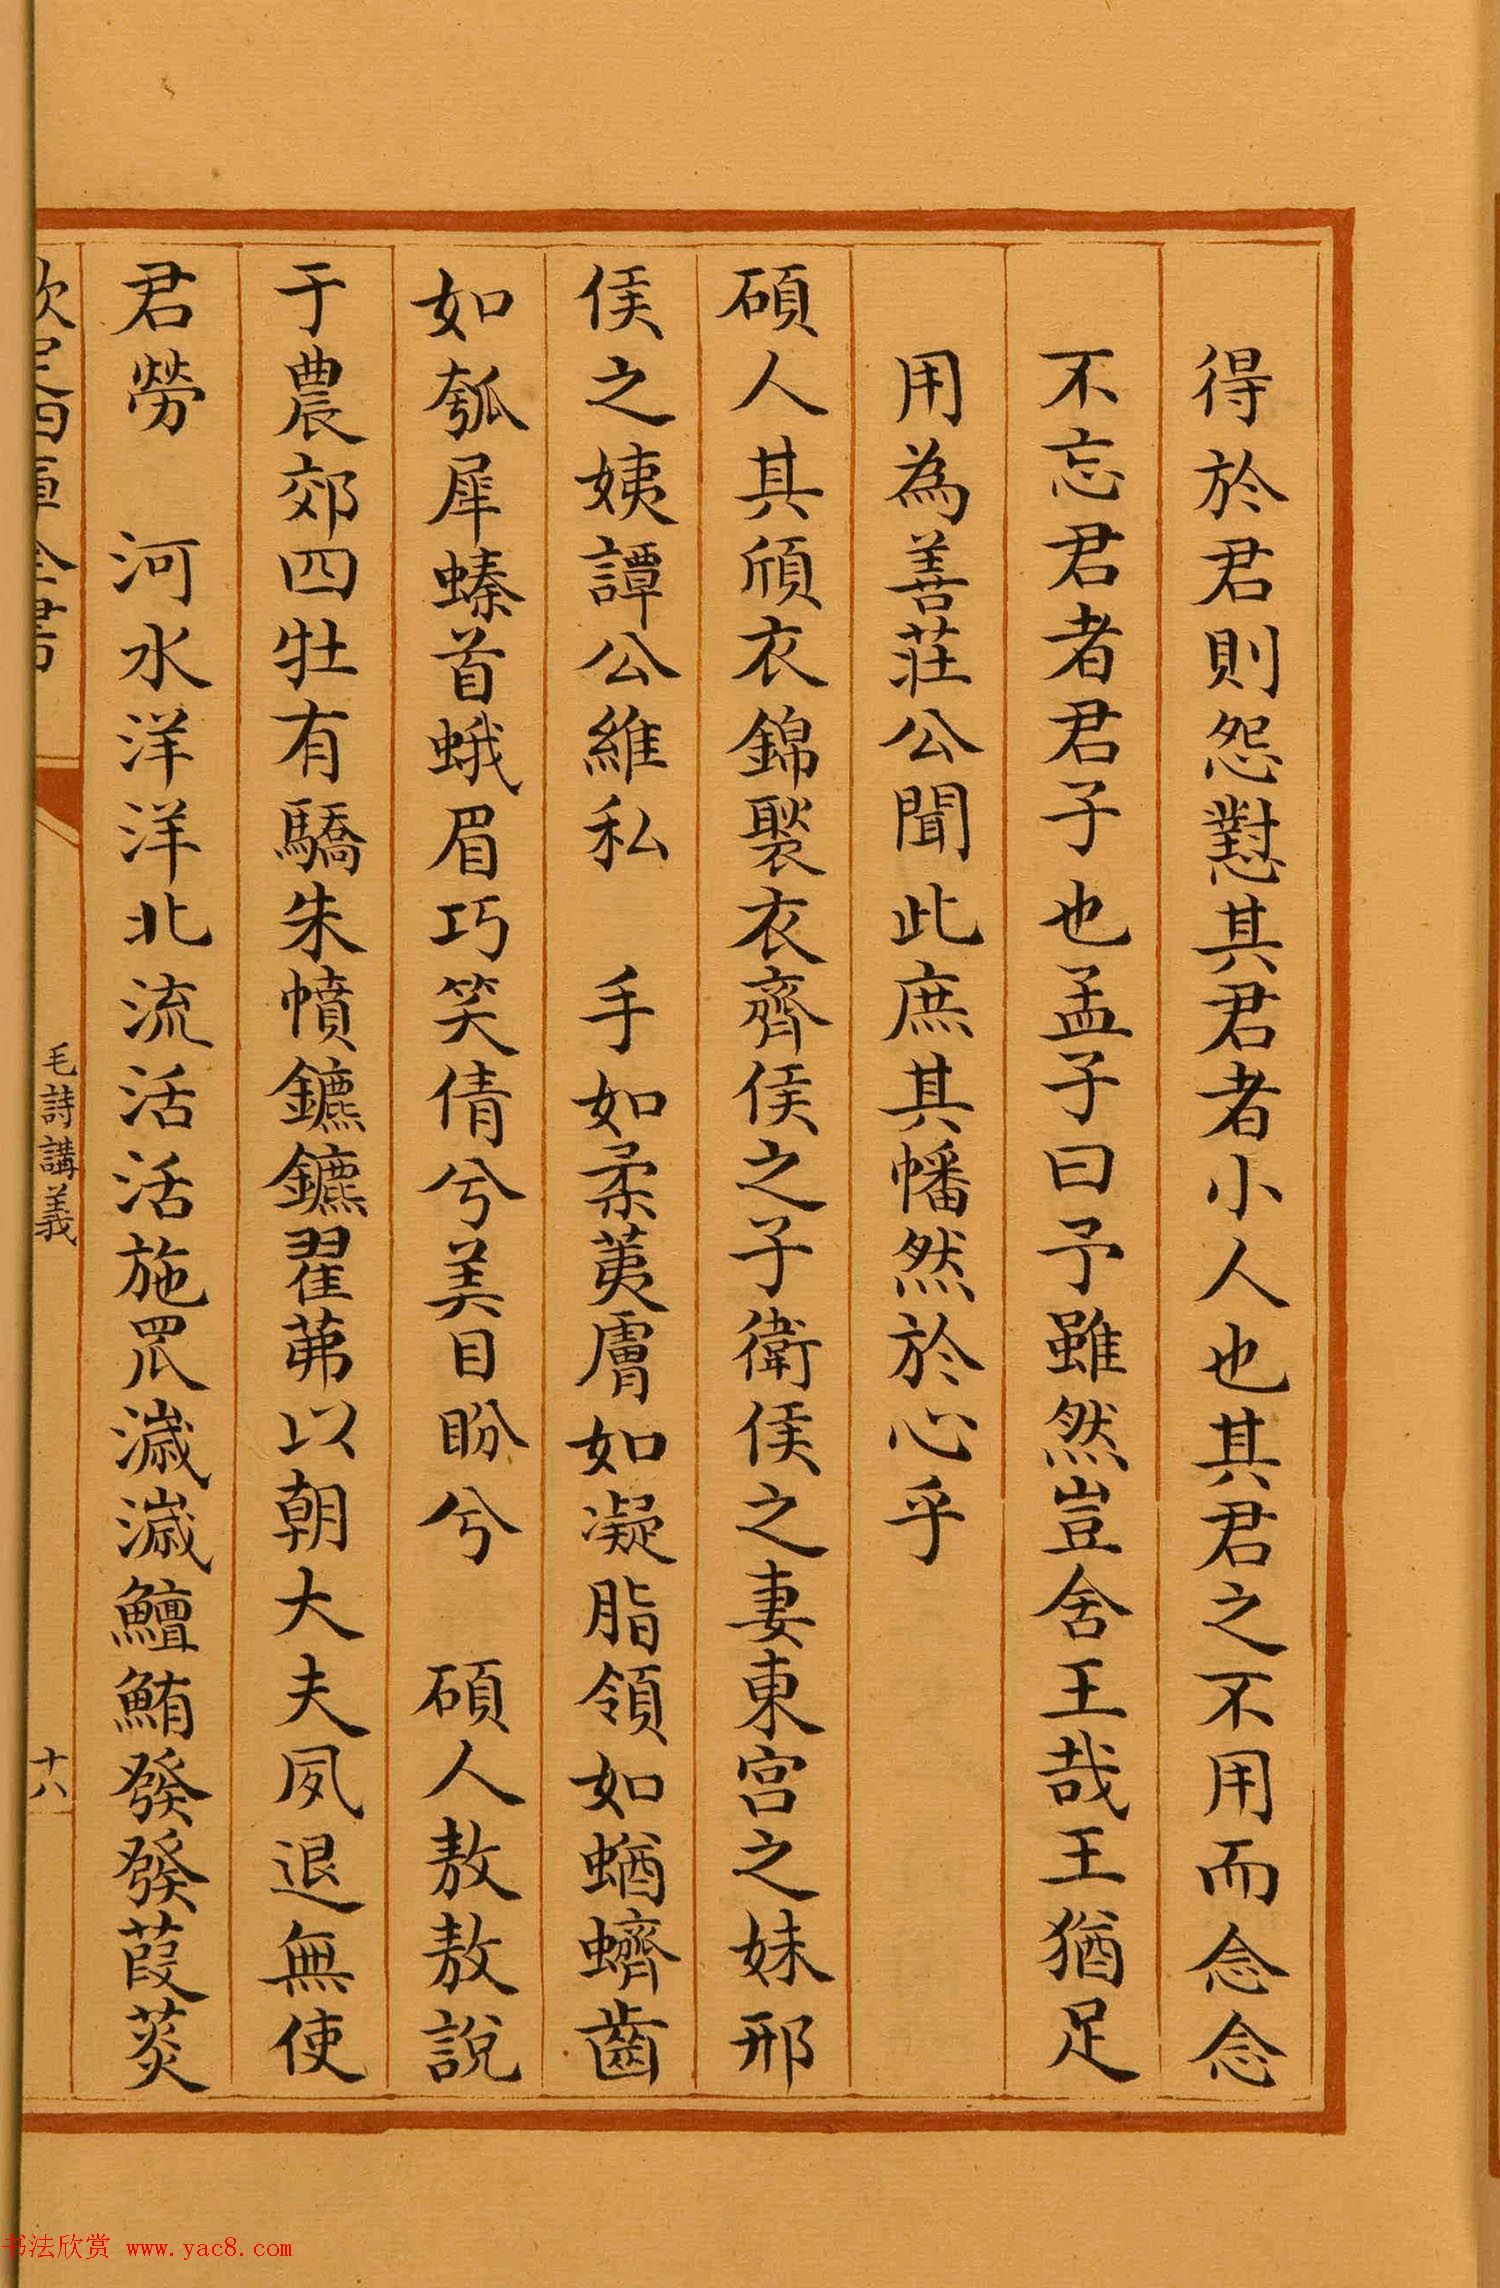 得於君則怨懟其君者小人也其君之不用而念念
不忘君者君子也孟子曰予雖然豈舍王哉王猶足
用為善莊公聞此庶其幡然於心乎
碩人其頎衣錦褧衣齊侯之子衛侯之妻東宮之妹邢
侯之姨譚公維私 手如柔荑膚如凝脂領如蝤蠐齒
如瓠犀螓首蛾眉巧笑倩兮美目盼兮 碩人敖敖說
于農郊四牡有驕朱幩鑣鑣翟茀以朝大夫夙退無使
君勞 河水洋洋北流活活施罛濊濊鱣鮪發發葭菼
欽定四庫全書
毛詩講義
十八
书法欣赏 www.yac8.com